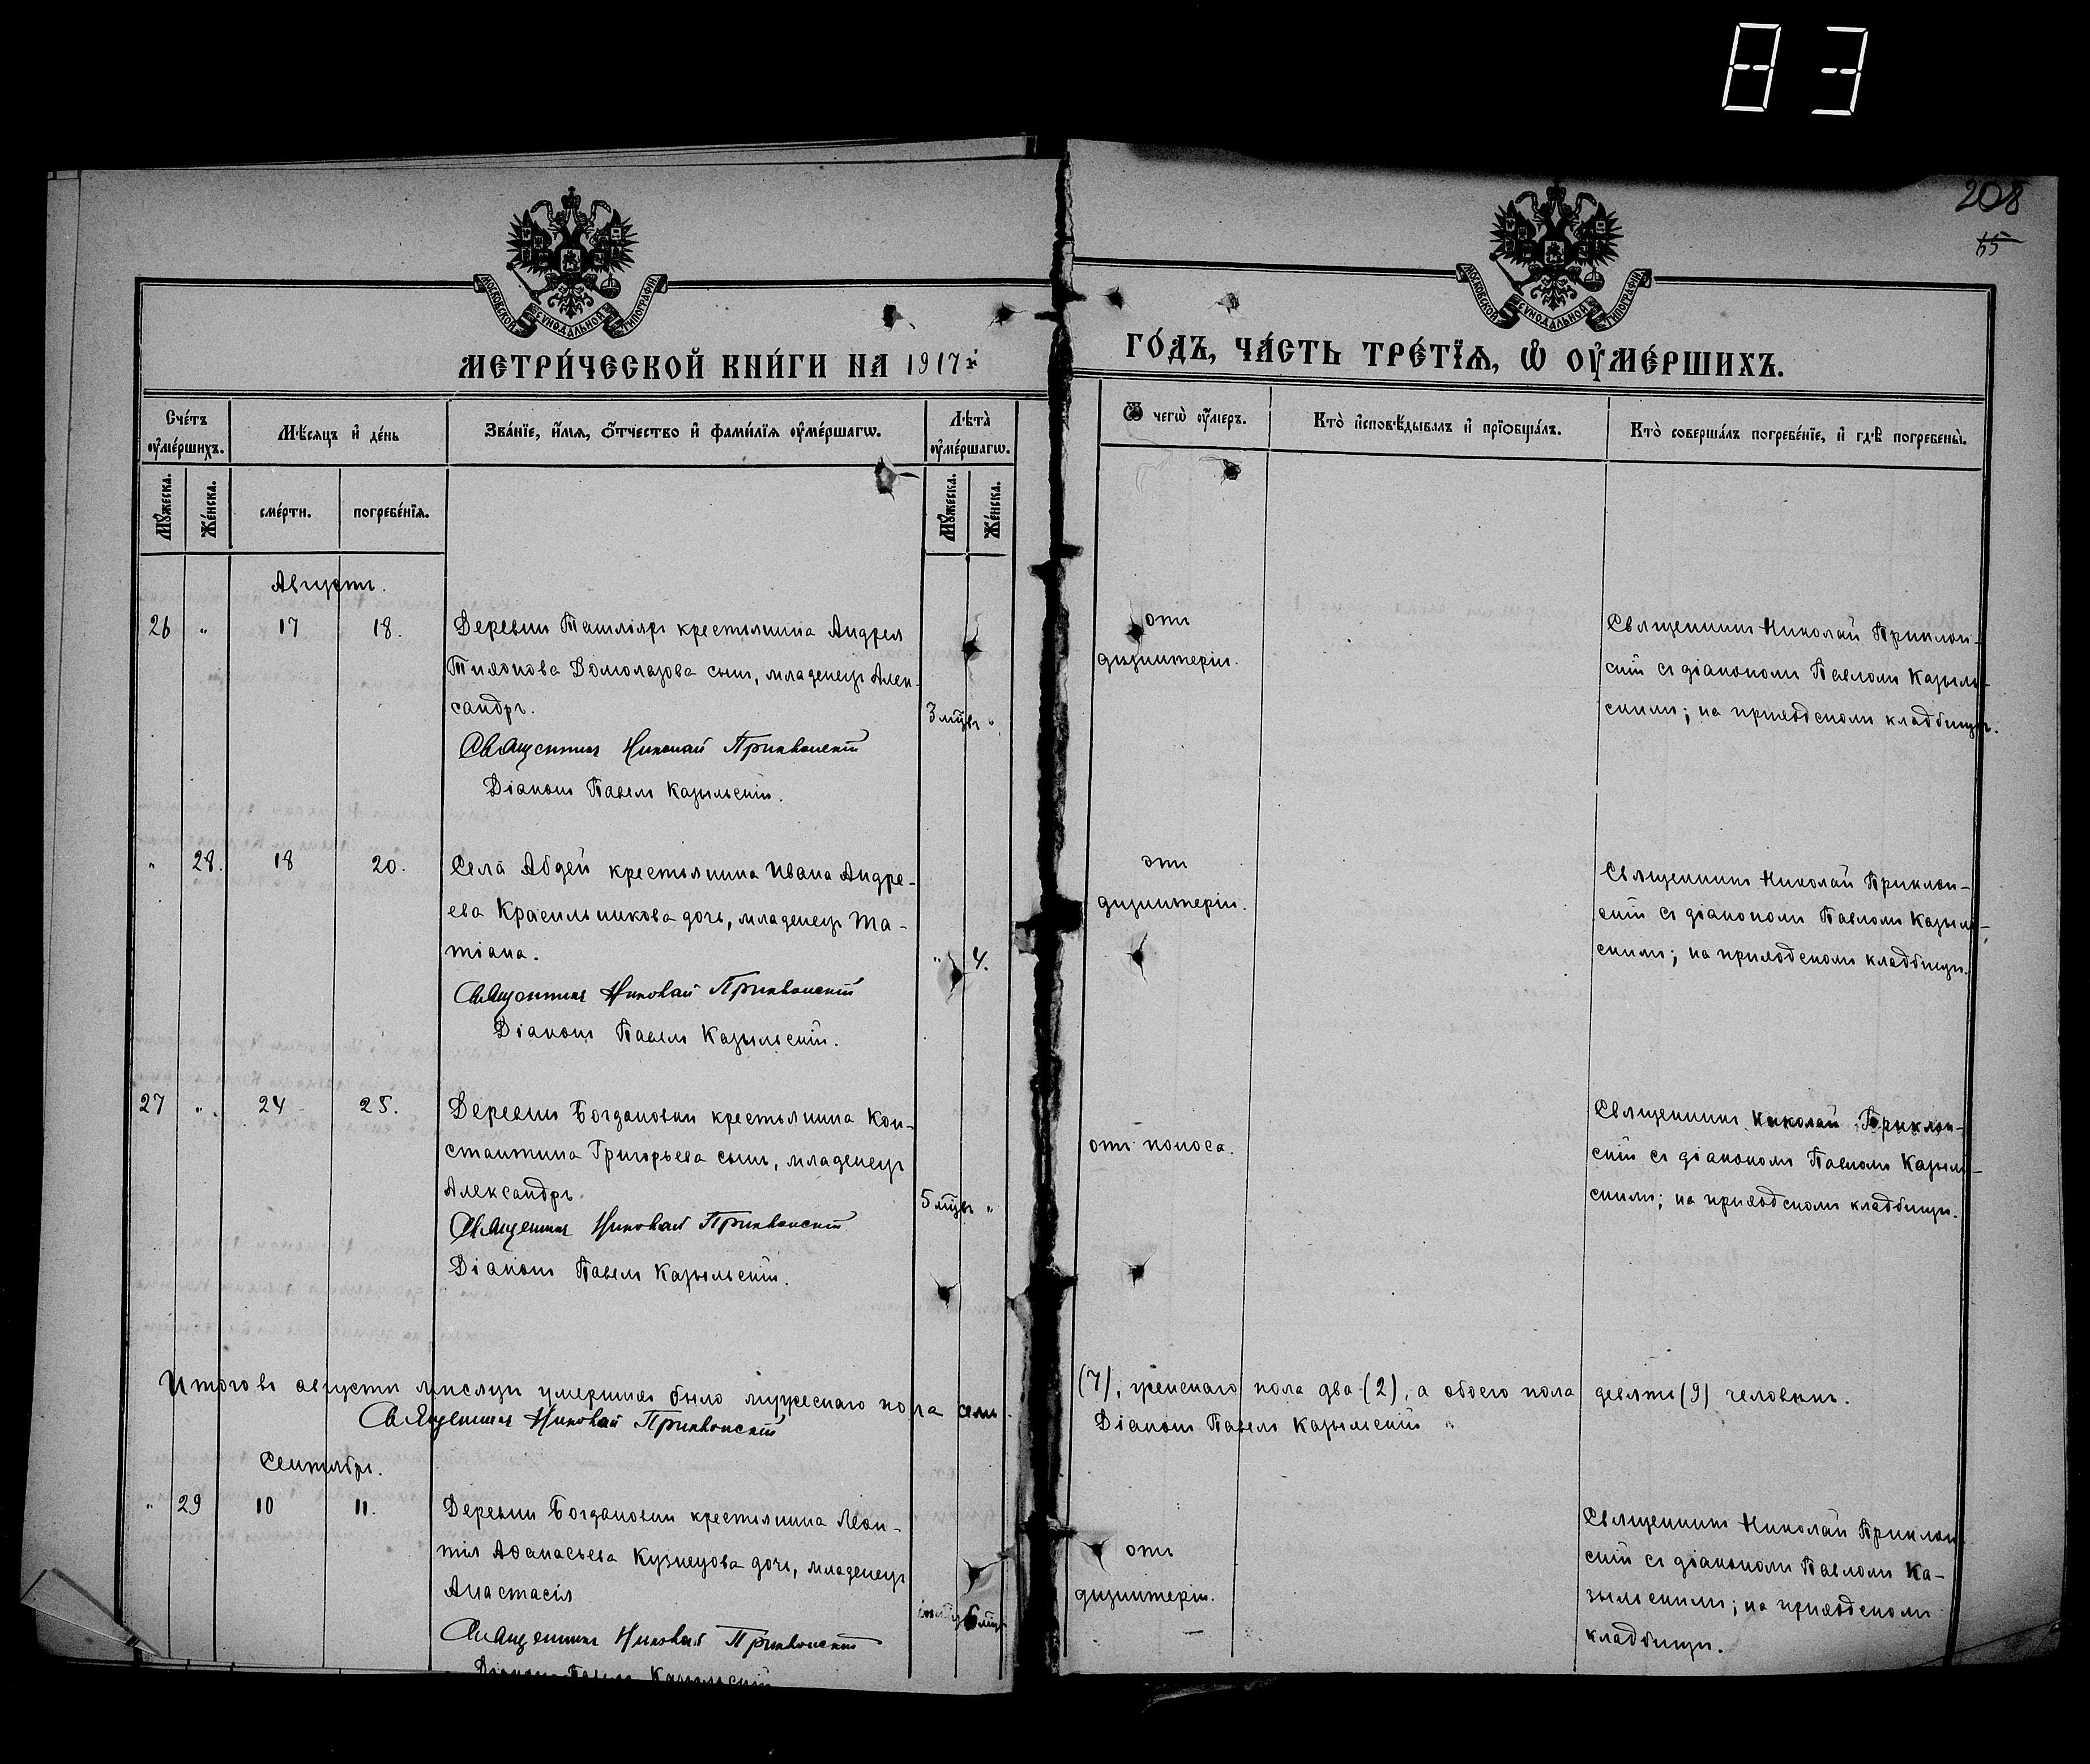 83
208
65
МОСКОВСКОЙ СѴНОДАЛЬНОЙ ТИПОГРАФІИ
МОСКОВСКОЙ СѴНОДАЛЬНОЙ ТИПОГРАФІИ
МЕТРИ́ЧЕСКОЙ КНИ́ГИ НА 1917й ГО́ДЪ, ЧА́СТЬ ТРЕ́ТЇѦ, Ѡ҆ ОУ҆МЕ́РШИХЪ.
Сче́тъ оу҆ме́ршихъ.
Мѣ́сяцъ и҆ де́нь
Зва́нїе, и҆́мѧ, ѻ҆́тчество и҆ фами́лїѧ оу҆ме́ршагѡ.
Лѣ́та оу҆ме́ршагѡ.
Ѿ чегѡ̀ оу҆́меръ.
Кто̀ и҆сповѣ́дывалъ и҆ прїѡбща́лъ.
Кто̀ соверша́лъ погребе́нїе, и҆ гдѣ̀ погребены̀.
Мꙋ́жеска.
Же́нска.
сме́рти.
погребе́нїѧ.
Мꙋ́жеска.
Же́нска.
Августъ.
26 " 17 18.
Деревни Ташлияръ крестьянина Андрея
Тихонова Домолазова сынъ, младенецъ Алек-
сандръ.
3 мцвъ "
Священникъ Николай Приклонскій
Діаконъ Павелъ Казыльскій.
отъ
дизинтеріи.
Священникъ Николай Приклон-
скій съ діакономъ Павломъ Казыль-
скимъ; на приходскомъ кладбищѣ.
" 28. 18 20.
Села Абдей крестьянина Ивана Андре-
ева Красильникова дочь, младенецъ Та-
тіана.
" 4.
Священникъ Николай Приклонскій
Діаконъ Павелъ Казыльскій.
отъ
дизинтеріи.
Священникъ Николай Приклон-
скій съ діакономъ Павломъ Казыль-
скимъ; на приходскомъ кладбищѣ.
27 " 24 25.
Деревни Богдановки крестьянина Кон-
стантина Григорьева сынъ, младенецъ
Александръ.
5 мцвъ "
Священникъ Николай Приклонскій
Діаконъ Павелъ Казыльскій.
отъ поноса.
Священникъ Николай Приклон-
скій съ діакономъ Павломъ Казыль-
скимъ; на приходскомъ кладбищѣ.
Итого въ августѣ мѣсяцѣ умершихъ было мужескаго пола семь (7), женскаго пола два (2), а обоего пола девять (9) человѣкъ.
Священникъ Николай Приклонскій
Діаконъ Павелъ Казыльскій
Сентябрь.
" 29 10 11.
Деревни Богдановки крестьянина Леон-
тія Аѳанасьева Кузнецова дочь, младенецъ
Анастасія
6 мцв
Священникъ Николай Приклонскій
Діаконъ Павелъ Казыльскій
отъ
дизинтеріи.
Священникъ Николай Приклон-
скій съ діакономъ Павломъ Ка-
зыльскимъ; на приходскомъ
кладбищѣ.